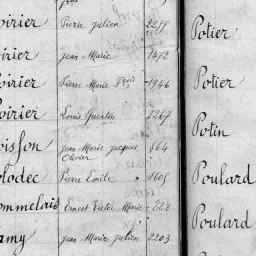 oirier Pierre Julien 2257 Potier
oirier Jean Marie 1472
oirier Pierre Marie Frois 1946 Potier
oirier Louis Quentin 7267
oisson Jean Marie Jacques 664 Potin
Olivier
olodec Pierre Emile 1605 Poulard
ommelais Ernest Victor Marie 222 Poulard
amy Jean Marie Julien 2203